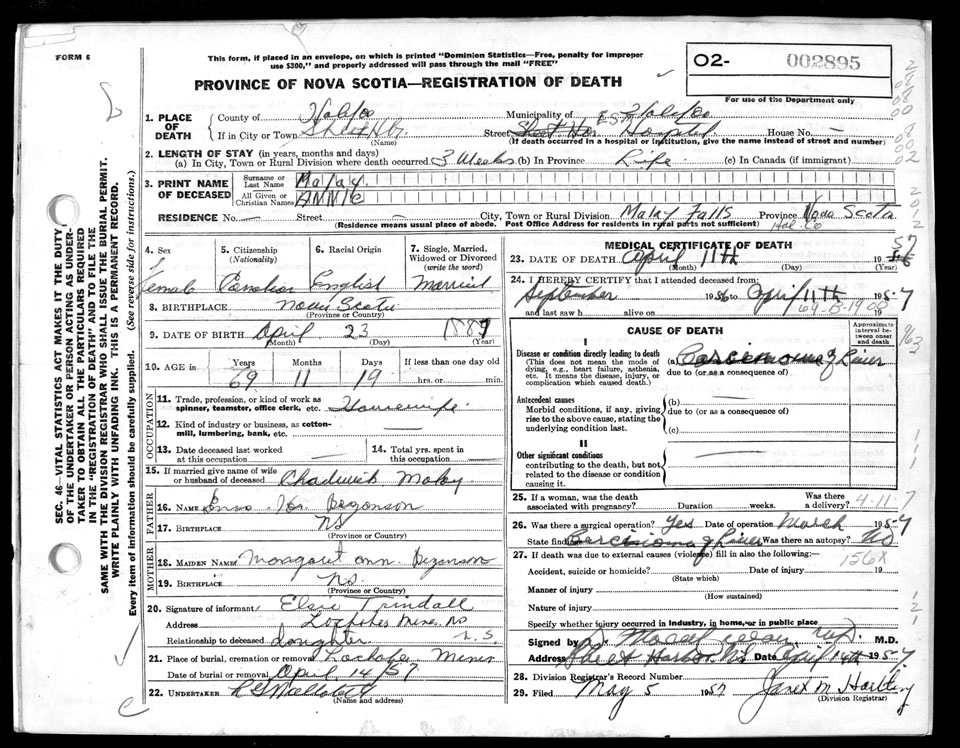 FORM 6
This form, if placed in an envelope, on which is printed "Dominion Statistics—Free, penalty for improper
use $300," and properly addressed will pass through the mail "FREE"
PROVINCE OF NOVA SCOTIA—REGISTRATION OF DEATH
O2- 002895
For use of the Department only
SEC. 46—VITAL STATISTICS ACT MAKES IT THE DUTY
OF THE UNDERTAKER OR PERSON ACTING AS UNDER-
TAKER TO OBTAIN ALL THE PARTICULARS REQUIRED
IN THE "REGISTRATION OF DEATH" AND TO FILE THE
SAME WITH THE DIVISION REGISTRAR WHO SHALL ISSUE THE BURIAL PERMIT.
WRITE PLAINLY WITH UNFADING INK. THIS IS A PERMANENT RECORD.
Every item of information should be carefully supplied. (See reverse side for instructions.)
1. PLACE OF DEATH
County of Halifax Municipality of Halifax
If in City or Town Street E.S. Hospital House No. —
(Name) (If death occurred in a hospital or institution, give the name instead of street and number)
2. LENGTH OF STAY (in years, months and days)
(a) In City, Town or Rural Division where death occurred 3 Weeks (b) In Province Life (c) In Canada (if immigrant)
3. PRINT NAME OF DECEASED
Surname or Last Name Malay
All Given or Christian Names ANNIE
RESIDENCE No. — Street — City, Town or Rural Division Malay Falls Province Nova Scotia
(Residence means usual place of abode. Post Office Address for residents in rural parts not sufficient) Hal. Co
4. Sex Female
5. Citizenship (Nationality) Canadian
6. Racial Origin English
7. Single, Married, Widowed or Divorced (write the word) Married
8. BIRTHPLACE Nova Scotia
(Province or Country)
9. DATE OF BIRTH April 23 1887
(Month) (Day) (Year)
10. AGE in Years 69 Months 11 Days 19 If less than one day old hrs. or min.
OCCUPATION
11. Trade, profession, or kind of work as
spinner, teamster, office clerk, etc. Housewife
12. Kind of industry or business, as cotton-
mill, lumbering, bank, etc. —
13. Date deceased last worked
at this occupation —
14. Total yrs. spent in
this occupation —
15. If married give name of wife
or husband of deceased Chadwick Malay
FATHER
16. NAME
17. BIRTHPLACE NS
(Province or Country)
MOTHER
18. MAIDEN NAME Margaret Ann
19. BIRTHPLACE NS.
(Province or Country)
20. Signature of informant Elsie
Address Mines NS
N.S.
Relationship to deceased daughter
21. Place of burial, cremation or removal Mines
Date of burial or removal April 14/57
22. UNDERTAKER
(Name and address)
MEDICAL CERTIFICATE OF DEATH
23. DATE OF DEATH April 11th 57
(Month) (Day) (Year)
24. I HEREBY CERTIFY that I attended deceased from:
September 1956 to April 11th 1957
and last saw h alive on 19
CAUSE OF DEATH
Approximate interval between onset and death
I
Disease or condition directly leading to death
(This does not mean the mode of
dying, e.g., heart failure, asthenia,
etc. It means the disease, injury, or
complication which caused death.)
(a) Carcinoma of Liver
due to (or as a consequence of)
Antecedent causes
Morbid conditions, if any, giving
rise to the above cause, stating the
underlying condition last.
(b) —
due to (or as a consequence of)
(c)
II
Other significant conditions
contributing to the death, but not
related to the disease or condition
causing it.
25. If a woman, was the death
associated with pregnancy? Duration weeks. Was there a delivery?
4-11-7
26. Was there a surgical operation? Yes Date of operation March 1957
State findings Carcinoma of Liver Was there an autopsy? No
27. If death was due to external causes (violence) fill in also the following:—
156X
Accident, suicide or homicide? Date of injury 19
(State which)
Manner of injury
(How sustained)
Nature of injury
Specify whether injury occurred in industry, in home, or in public place
Signed by M.D.
Address Sheet Harbor NS Date April 14th 1957
28. Division Registrar's Record Number
29. Filed May 5 1957 Janet M
(Division Registrar)